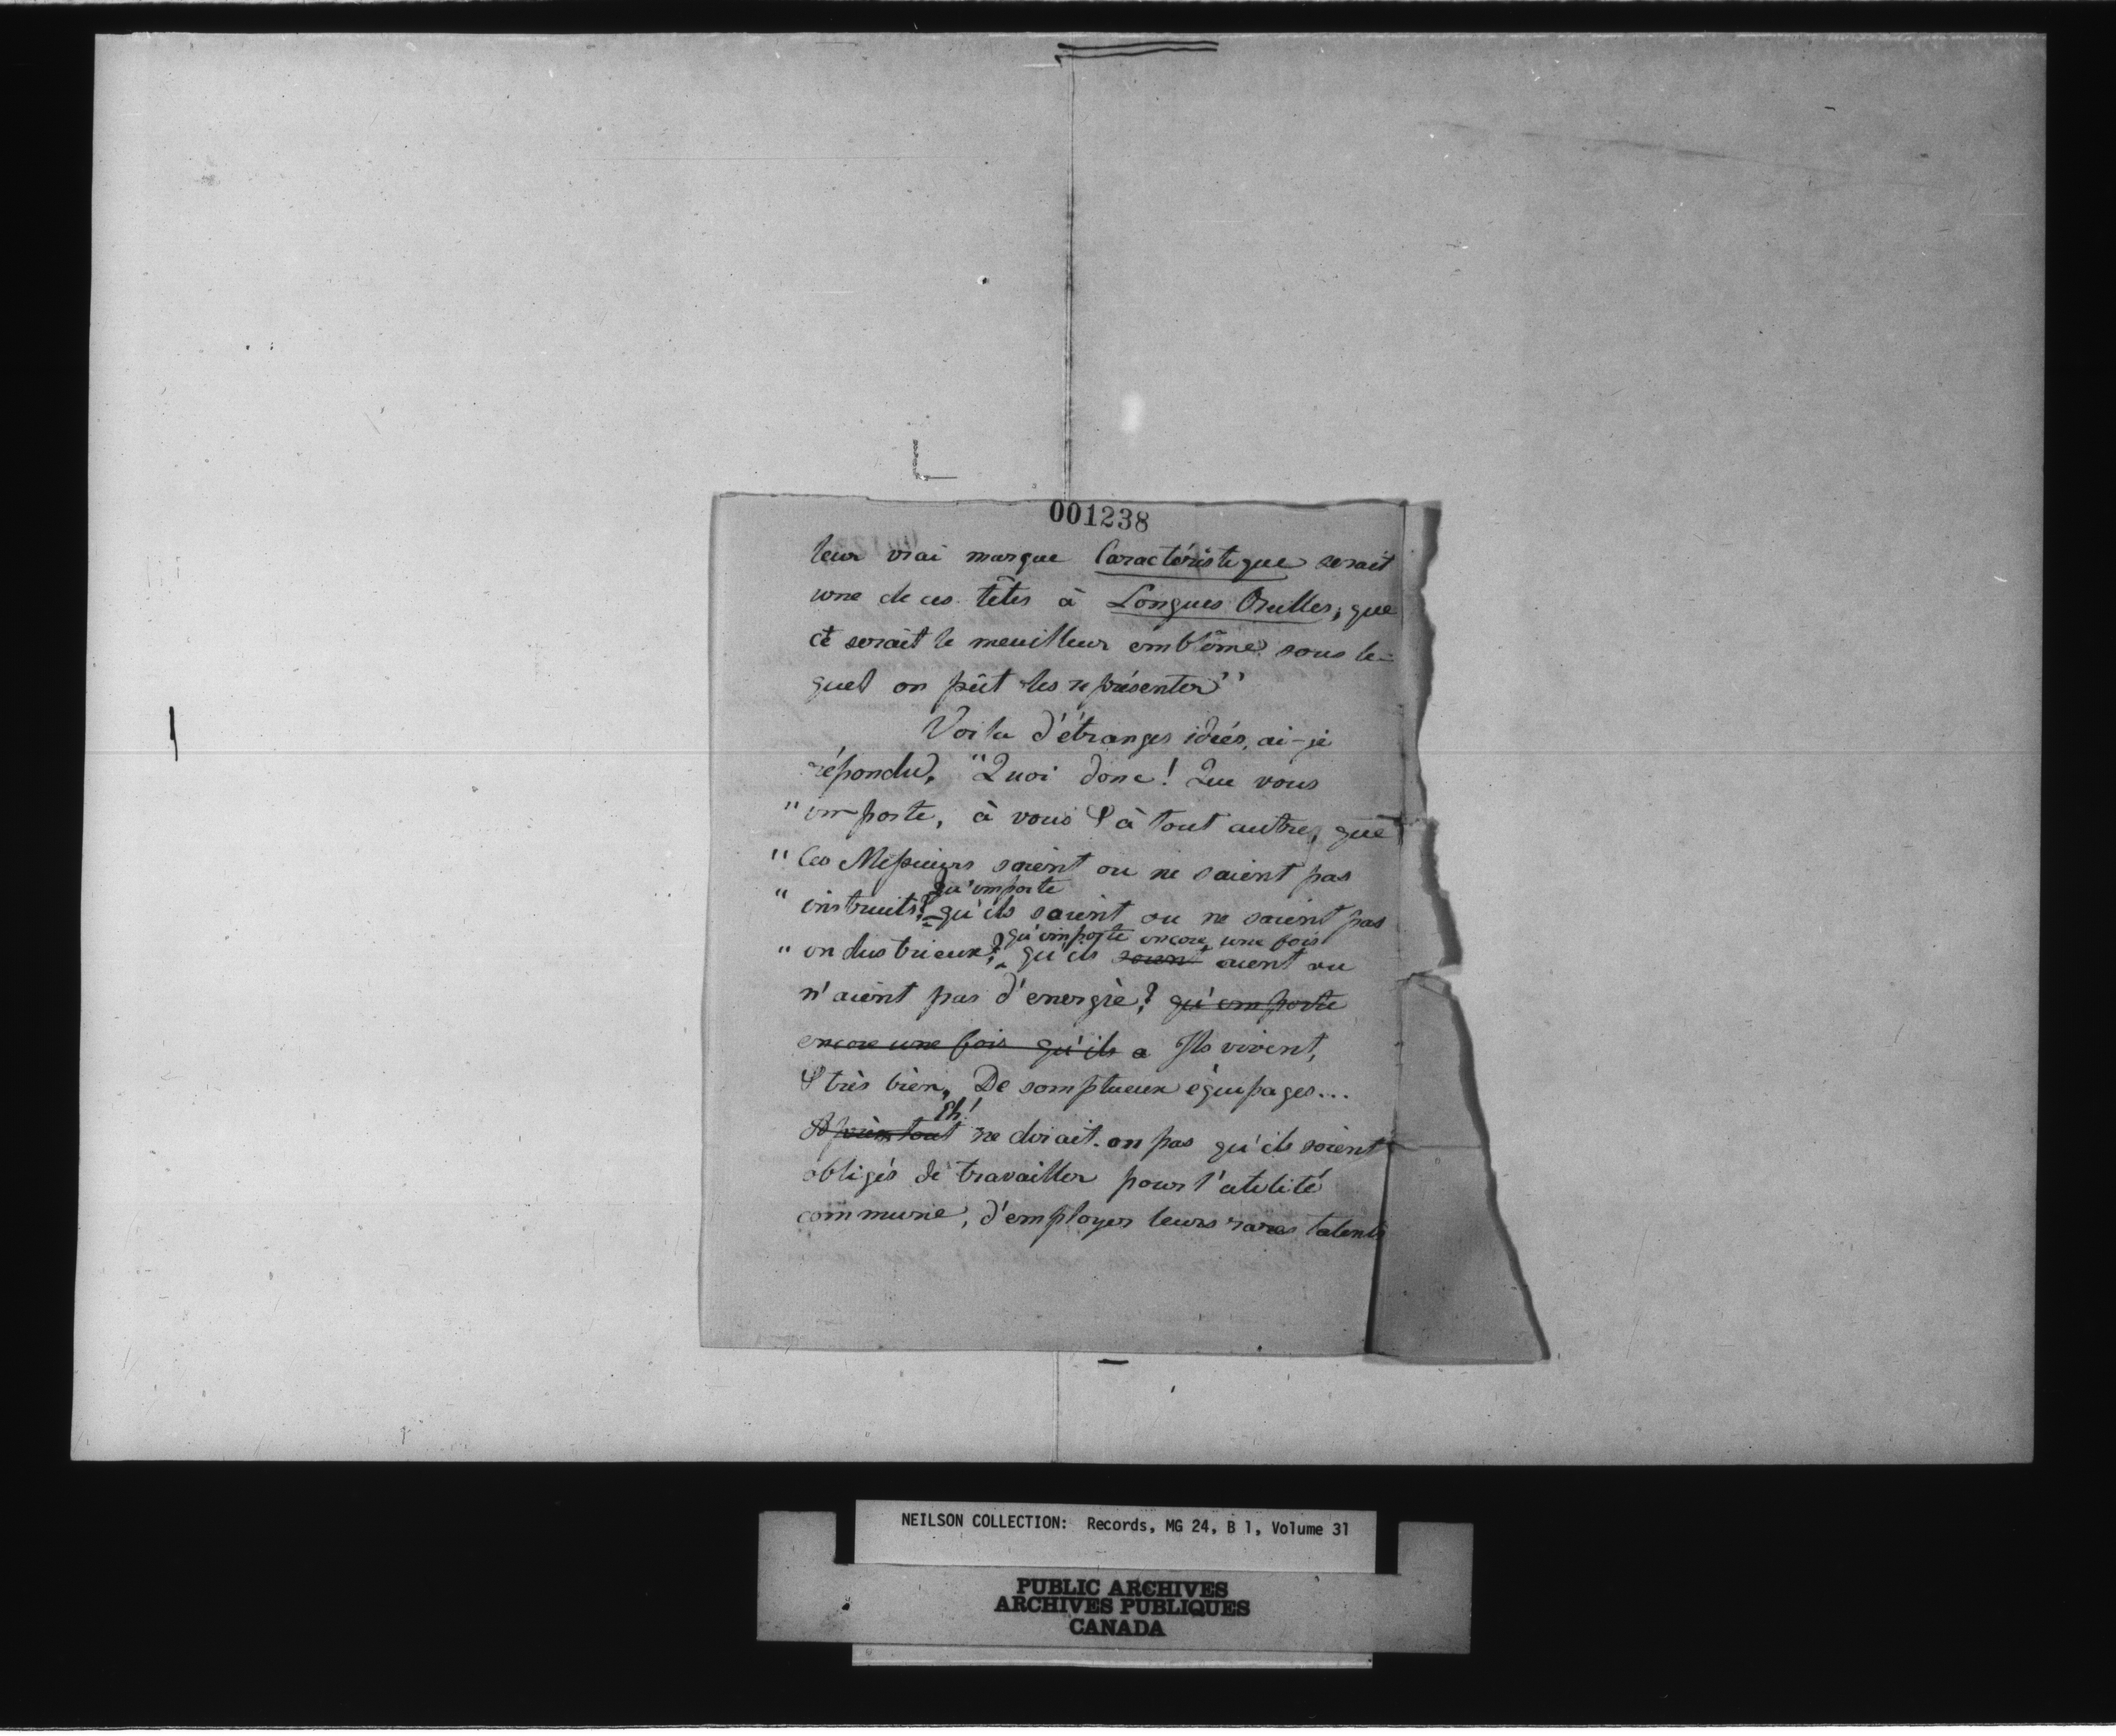 001238
leur vrai marque Caractéristique serait
une de ces têtes à Longues Oreilles, que
ce serait le meuilleur emblême sous le-
quel on pût les représenter"
Voila d'étranges idées, ai-je
répondu, "Quoi donc! Que vous
" importe, à vous & à tout autre, que
" ces Messieurs soient ou ne soient pas
qu'importe
" instruits? qu'ils soient ou ne soient pas
qu'importe encore une fois
" industrieux? qu'ils soient aient ou
n'aient pas d'energie? qu'importe
encore une fois qu'ils a Ils vivent,
& très bien, De somptueux équipages...
Eh!
Après tout ne dirait-on pas qu'ils soient
obligés de travailler pour l'utilité
commune, d'employer leurs rares talents
NEILSON COLLECTION: Records, MG 24, B 1, Volume 31
PUBLIC ARCHIVES
ARCHIVES PUBLIQUES
CANADA